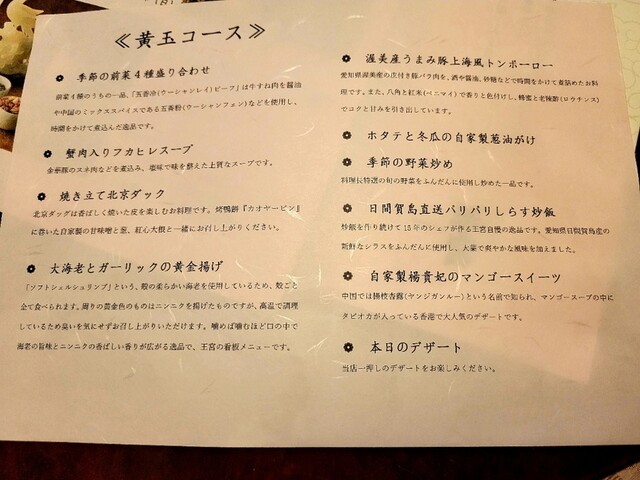 《黄玉コース》
季節の前菜4種盛り合わせ
前菜4種のうちの一品、「五香滷(ウーシャンレイ)ビーフ」は牛すね肉を醤油
や中国のミックススパイスである五香粉(ウーシャンフェン)などを使用し、
時間をかけて煮込んだ逸品です。
蟹肉入りフカヒレスープ
金華豚のスネ肉などを煮込み、塩味で味を整えた上質なスープです。
焼き立て北京ダック
北京ダッグは香ばしく焼いた皮を楽しむお料理です。烤鴨餅『カオヤーピン』
に巻いた自家製の甘味噌と葱、紅心大根と一緒にお召し上がりください。
大海老とガーリックの黄金揚げ
「ソフトシェルシュリンプ」という、殻の柔らかい海老を使用しているため、殻ごと
全て食べられます。周りの黄金色のものはニンニクを揚げたものですが、高温で調理
しているため臭いを気にせずお召し上がりいただけます。噛めば噛むほど口の中で
海老の旨味とニンニクの香ばしい香りが広がる逸品で、王宮の看板メニューです。
渥美産うまみ豚上海風トンポーロー
愛知県渥美産の皮付き豚バラ肉を、酒や醤油、砂糖などで時間をかけて煮詰めたお料
理です。また、八角と紅米(ベニマイ)で香りと色付けし、蜂蜜と老陳酢(ロウチンス)
でコクと甘みを引き出しています。
ホタテと冬瓜の自家製葱油がけ
季節の野菜炒め
料理長特選の旬の野菜をふんだんに使用し炒めた一品です。
日間賀島直送パリパリしらす炒飯
炒飯を作り続けて15年のシェフが作る王宮自慢の逸品です。愛知県日間賀島産の
新鮮なシラスをふんだんに使用し、大葉で爽やかな風味を加えました。
自家製楊貴妃のマンゴースイーツ
中国では楊枝香露(ヤンジガンルー)という名前で知られ、マンゴースープの中に
タピオカが入っている香港で大人気のデザートです。
本日のデザート
当店一押しのデザートをお楽しみください。